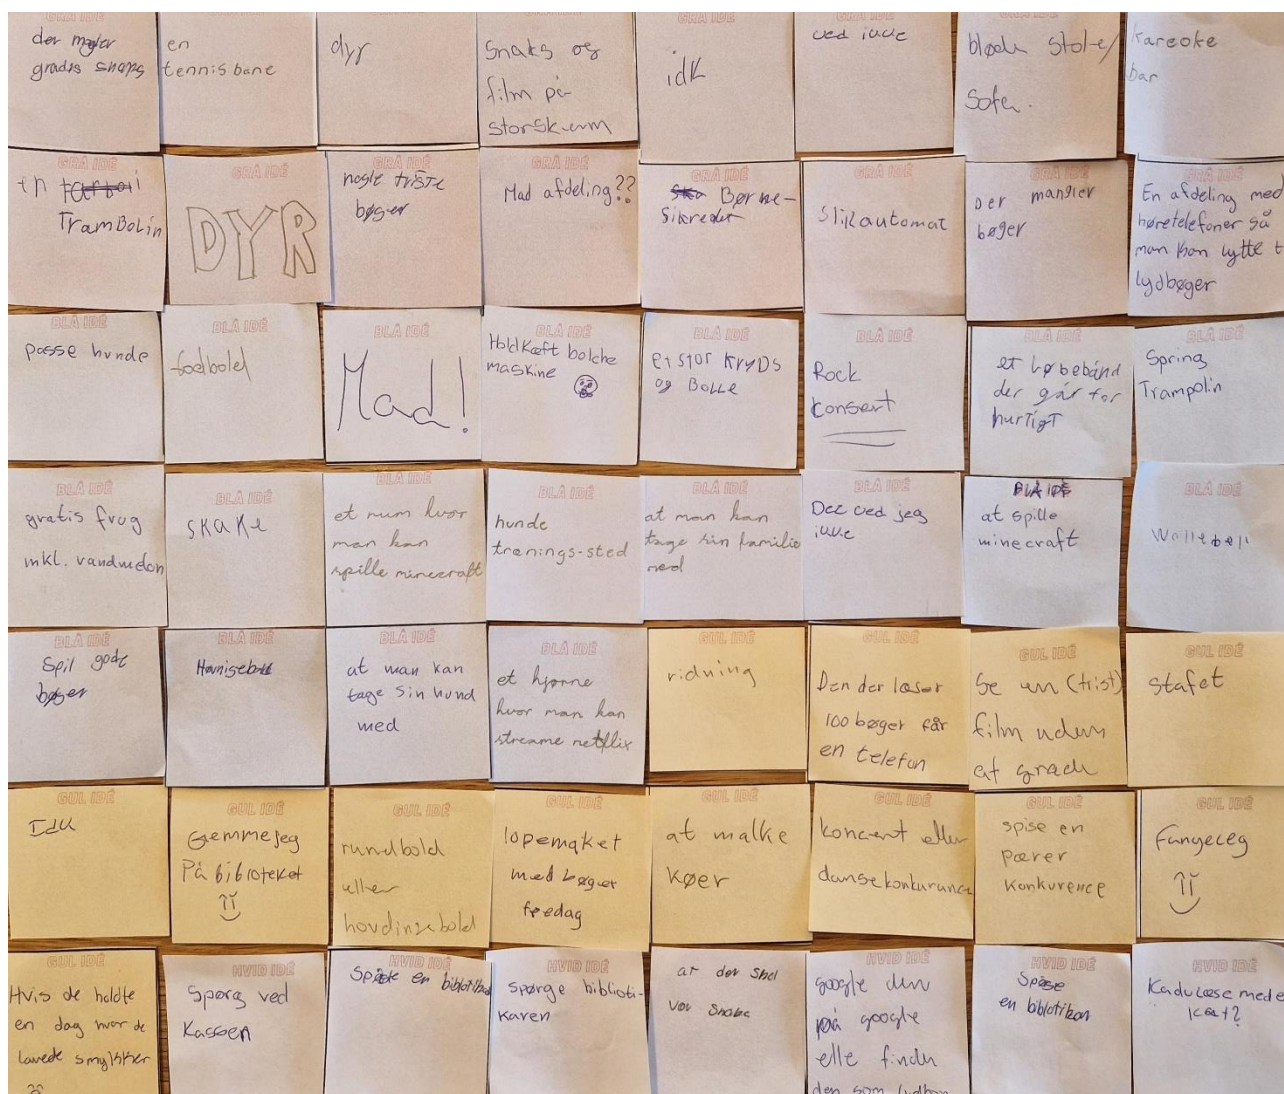 GRÅ IDÉ
der mangler
gradis snaps
GRÅ IDÉ
en
tennisbane
GRÅ IDÉ
dyr
GRÅ IDÉ
Snaks og
film på
storskærm
idk
GRÅ IDÉ
ved ikke
GRÅ IDÉ
bløde stole/
Sofa.
GRÅ IDÉ
kareoke
bar
GRÅ IDÉ
en
TramBolin
GRÅ IDÉ
DYR
GRÅ IDÉ
nogle triste
bøger
GRÅ IDÉ
Mad afdeling??
GRÅ IDÉ
Børne-
Sikredet
GRÅ IDÉ
Slikautomat
GRÅ IDÉ
Der mangler
bøger
GRÅ IDÉ
En afdeling med
høretelefoner så
man kan lytte t
lydbøger
BLÅ IDÉ
passe hunde
BLÅ IDÉ
fodbold
BLÅ IDÉ
Mad!
BLÅ IDÉ
Holdkæft bolche
maskine
BLÅ IDÉ
et stor KryDs
og Bolle
BLÅ IDÉ
Rock
konsert
BLÅ IDÉ
et løbebånd
der går for
hurtigt
BLÅ IDÉ
Spring
Trampolin
BLÅ IDÉ
gratis frug
inkl. vandmelon
BLÅ IDÉ
SKAKE
BLÅ IDÉ
et rum hvor
man kan
spille minecraft
BLÅ IDÉ
hunde
trænings-sted
BLÅ IDÉ
at man kan
tage sin familie
med
BLÅ IDÉ
Det ved jeg
ikke
BLÅ IDÉ
at spille
minecraft
BLÅ IDÉ
Wollebell
BLÅ IDÉ
Spil gode
bøger
BLÅ IDÉ
BLÅ IDÉ
at man kan
tage sin hund
med
BLÅ IDÉ
et hjørne
hvor man kan
streame netflix
GUL IDÉ
ridning
GUL IDÉ
Den der læser
100 bøger får
en telefon
GUL IDÉ
Se en (trist)
film uden
at græde
GUL IDÉ
stafet
GUL IDÉ
Idk
GUL IDÉ
Gemmejeg
På biblioteket
GUL IDÉ
rundbold
eller
hovdingebold
GUL IDÉ
lopemaket
med bøger
fredag
GUL IDÉ
at malke
køer
GUL IDÉ
koncert eller
GUL IDÉ
spise en
pærer
konkurence
GUL IDÉ
Fangeleg
GUL IDÉ
Hvis de holdte
en dag hvor de
lavede smykker
HVID IDÉ
Spørg ved
Kassen
HVID IDÉ
en
HVID IDÉ
Spørge biblioti-
karen
at der skal
HVID IDÉ
google den
på google
elle finde
den som lydbog
HVID IDÉ
en
HVID IDÉ